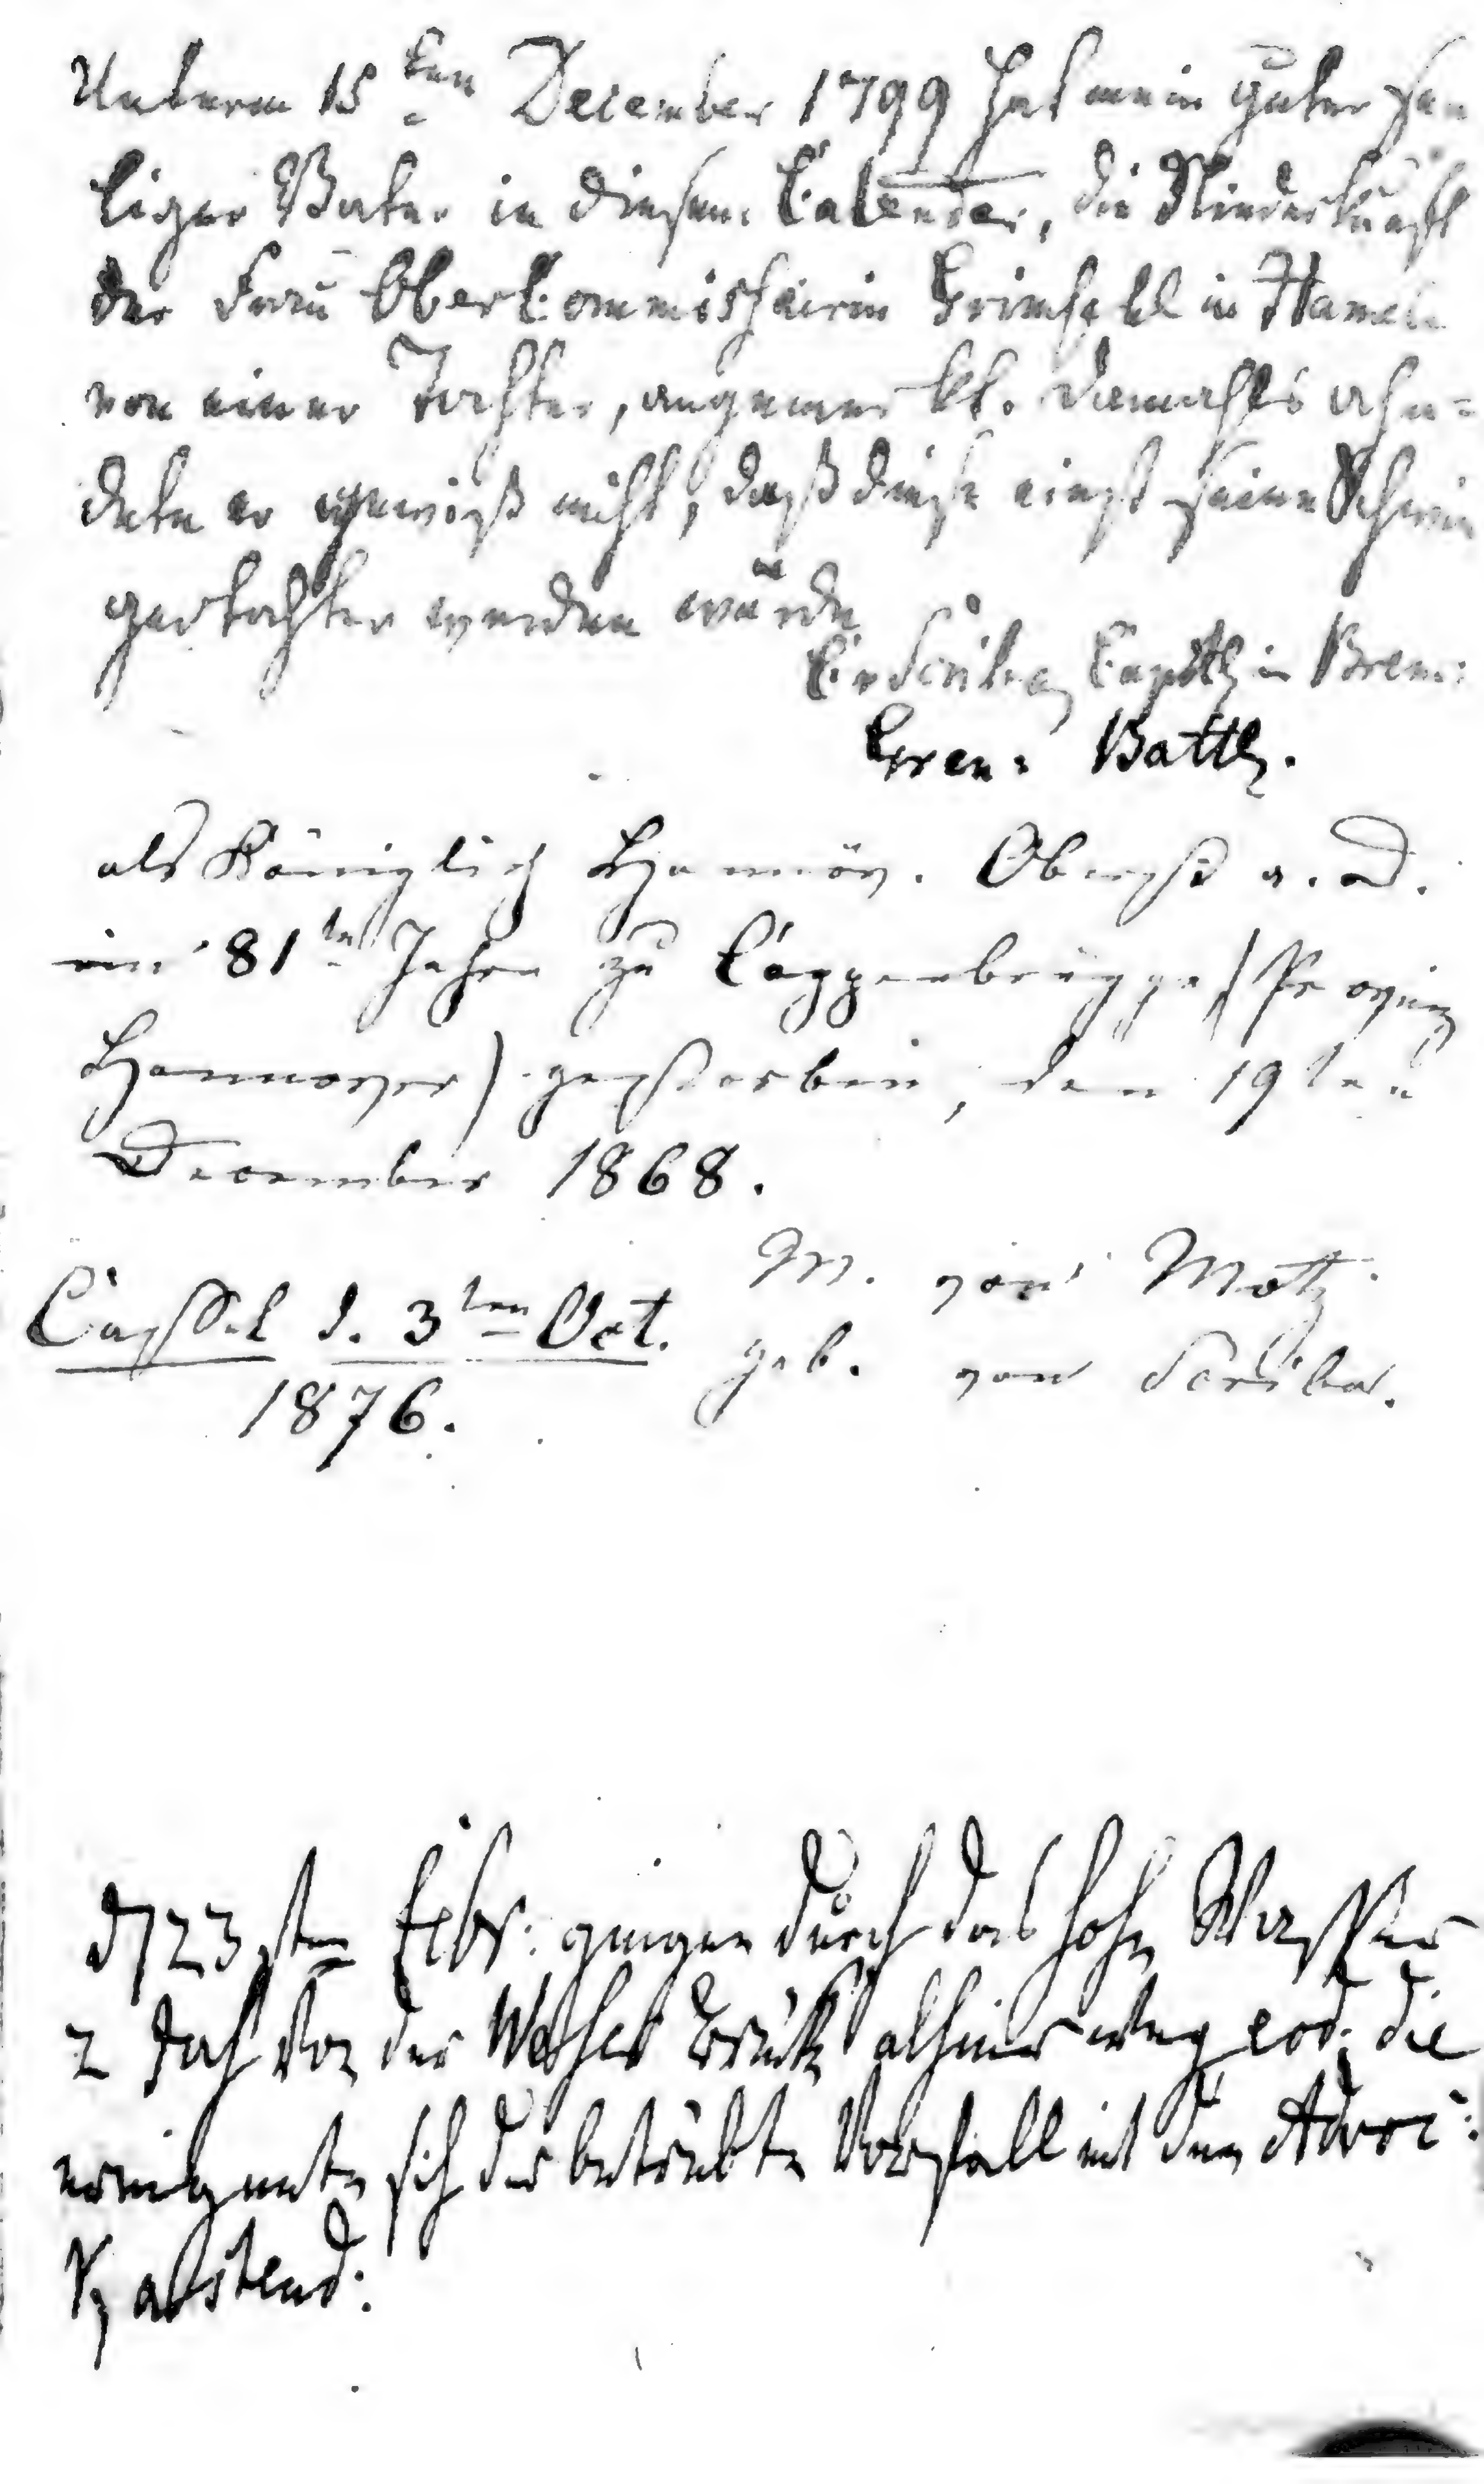 Unterm 15ten December 1799 hat mein guter see
liger Vater in diesem Calender, die Niederkunft
der Frau Obercommissairin Grimsehl in Hameln
von einer Tochter, angemerkt. Damahls ahn=
dete er gewiß nicht, daß diese einst seine Schwie
gertochter werden würde
Scriba, Captt in Brem:
Gren: Battl.
als Königlich Hannöv. Oberst a. D.
im 81ten Jahre zu Coppenbrügge (Provinz
Hannover) gestorben, den 19ten
December 1868.
M. von Motz
geb. von Scriba.
Cassel d. 3ten Oct.
1876.
d 23sten Febr: gingen durch das hohe Wasser
2 Joch von der Weser Brücke alhier weg eod. die
ereignete sich der betrübte Vorfall mit dem Advoc: